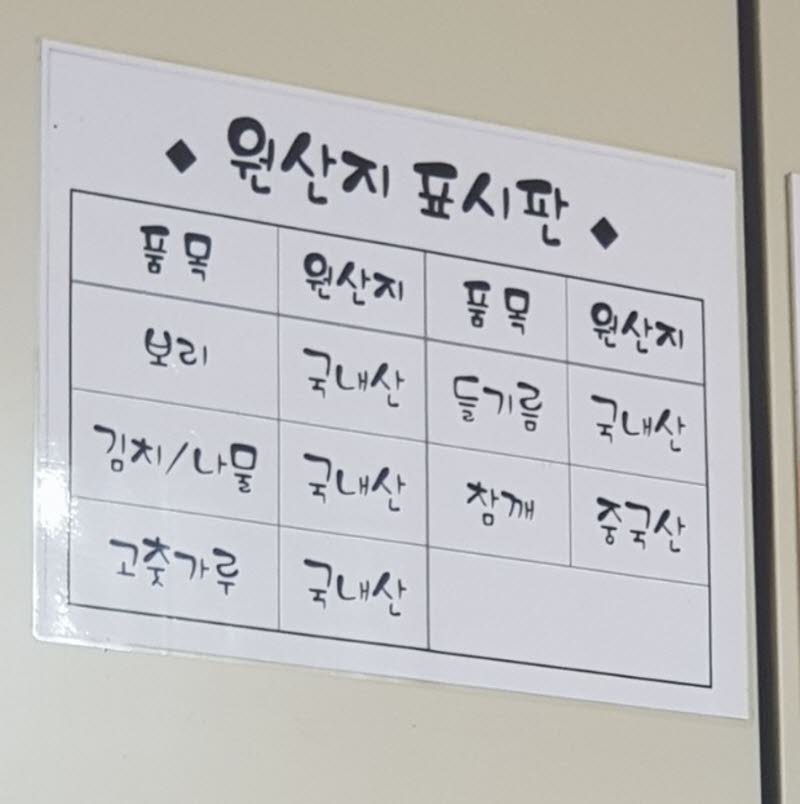 ◆ 원산지 표시판 ◆
품목 원산지 품목 원산지
보리 국내산 들기름 국내산
김치/나물 국내산 참깨 중국산
고춧가루 국내산